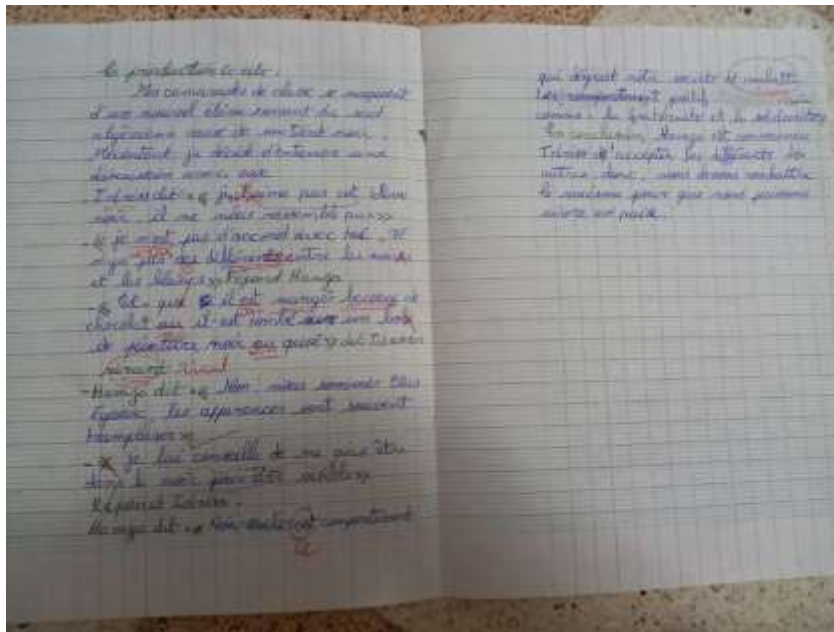 la production écrite :
Mes camarades de classe se moquaient
d'un nouvel élève venant du sud
algérienne avec de un teint noir.
j'ai décidé d'entamer une
discussion avec eux
- Idriss dit : « j'aime pas cet élève
noir, il ne nous ressemble pas »
- « je n'est pas d'accord avec toi. Il
n'ya pas des différents entre les noirs
et les blancs » Répond Hamza
- « Est-que il est mangé beacoup de
chocolat ou il est tombé dans un bain
de peinture noir ou quoi ? » dit Idriss
riant
- Hamza dit : « Non, nous sommes tous
égaux, les apparences sont souvent
trompeuses »
- « je lui conseille de ne pas être
dans le noir pour être visible »
Répond Idriss.
Hamza dit : « Non comportement
qui notre société de combattre
Les comportement positif
comme : la fraternité et la solidarité
En conclusion, Hamza est convaincu
Idriss d'accepter les différents des
autres, donc, nous devons combattre
le racisme pour que nous puissons
vivre en paix.